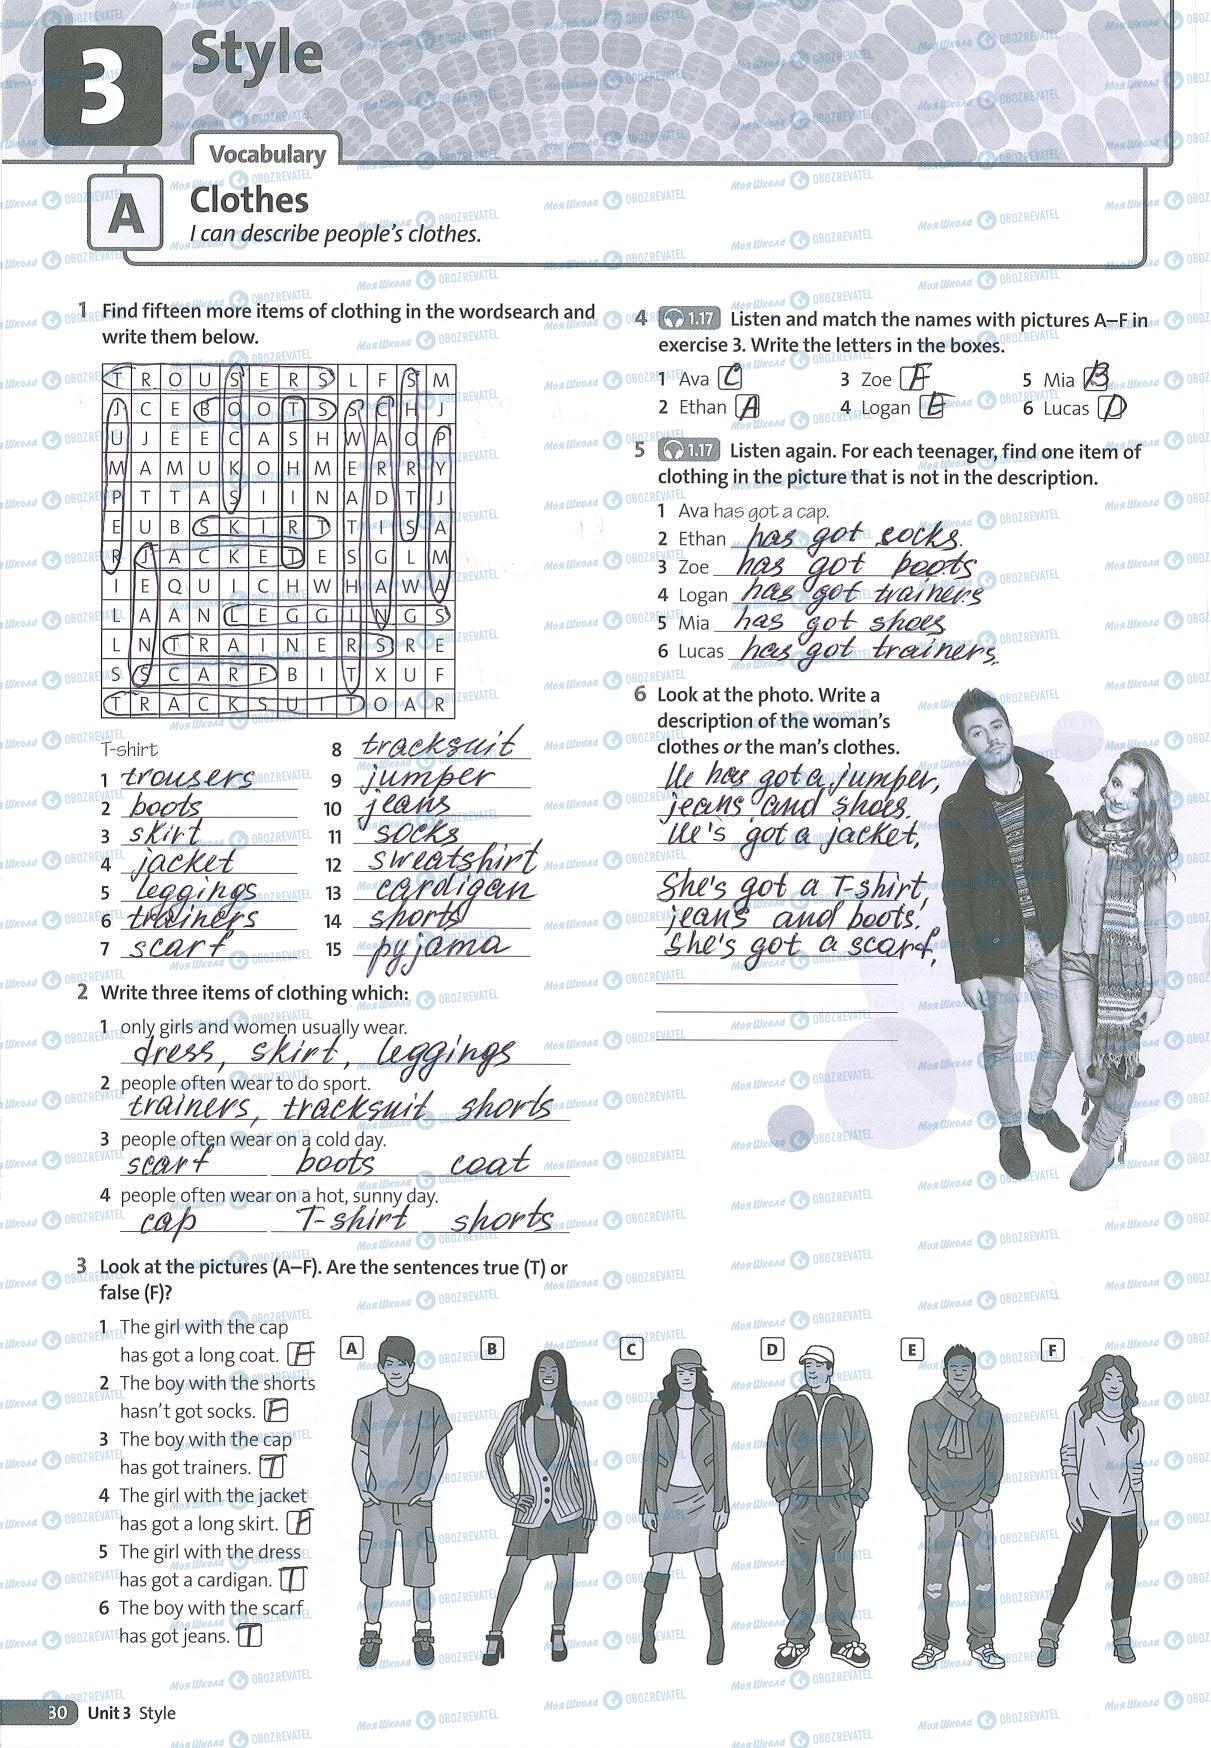 3
Style
Vocabulary
A
Clothes
I can describe people's clothes.
1 Find fifteen more items of clothing in the wordsearch and
write them below.
T R O U S E R S L F S M
J C E B O O T S S C H J
U J E E C A S H W A O P
M A M U K O H M E R R Y
P T T A S I I N A D T J
E U B S K I R T T I S A
R J A C K E T E S G L M
I E Q U I C H W H A W A
L A A N L E G G I N G S
L N T R A I N E R S R E
S S C A R F B I T X U F
T R A C K S U I T O A R
T-shirt
1 trousers
2 boots
3 skirt
4 jacket
5 leggings
6 trainers
7 scarf
8 tracksuit
9 jumper
10 jeans
11 socks
12 sweatshirt
13 cardigan
14 shorts
15 pyjama
2 Write three items of clothing which:
1 only girls and women usually wear.
dress, skirt, leggings
2 people often wear to do sport.
trainers, tracksuit shorts
3 people often wear on a cold day.
scarf boots coat
4 people often wear on a hot, sunny day.
cap T-shirt shorts
3 Look at the pictures (A–F). Are the sentences true (T) or
false (F)?
1 The girl with the cap
has got a long coat. F
2 The boy with the shorts
hasn't got socks. F
3 The boy with the cap
has got trainers. T
4 The girl with the jacket
has got a long skirt. F
5 The girl with the dress
has got a cardigan. T
6 The boy with the scarf
has got jeans. T
4 1.17 Listen and match the names with pictures A–F in
exercise 3. Write the letters in the boxes.
1 Ava C 3 Zoe F 5 Mia B
2 Ethan A 4 Logan E 6 Lucas D
5 1.17 Listen again. For each teenager, find one item of
clothing in the picture that is not in the description.
1 Ava has got a cap.
2 Ethan has got socks.
3 Zoe has got boots
4 Logan has got trainers
5 Mia has got shoes
6 Lucas has got trainers.
6 Look at the photo. Write a
description of the woman's
clothes or the man's clothes.
He has got a jumper,
jeans and shoes.
He's got a jacket.
She's got a T-shirt,
jeans and boots.
She's got a scarf.
A B C D E F
30 Unit 3 Style
МояШкола OBOZREVATEL